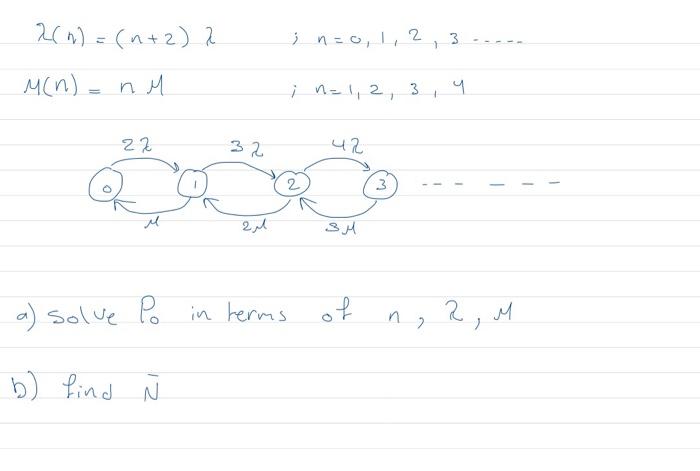 λ(n) = (n+2) λ ; n=0, 1, 2, 3 -----
M(n) = n M ; n=1, 2, 3, 4
2λ 3λ 4λ
0 1 2 3 --- - - - -
M 2M 3M
a) solve P₀ in terms of n, λ, M
b) find N̄